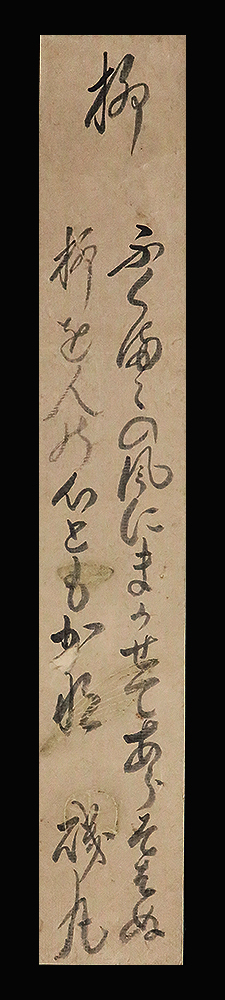 柳
ふくまゝの風にまかせてあらそはぬ
柳を人の心ともかな
磯丸